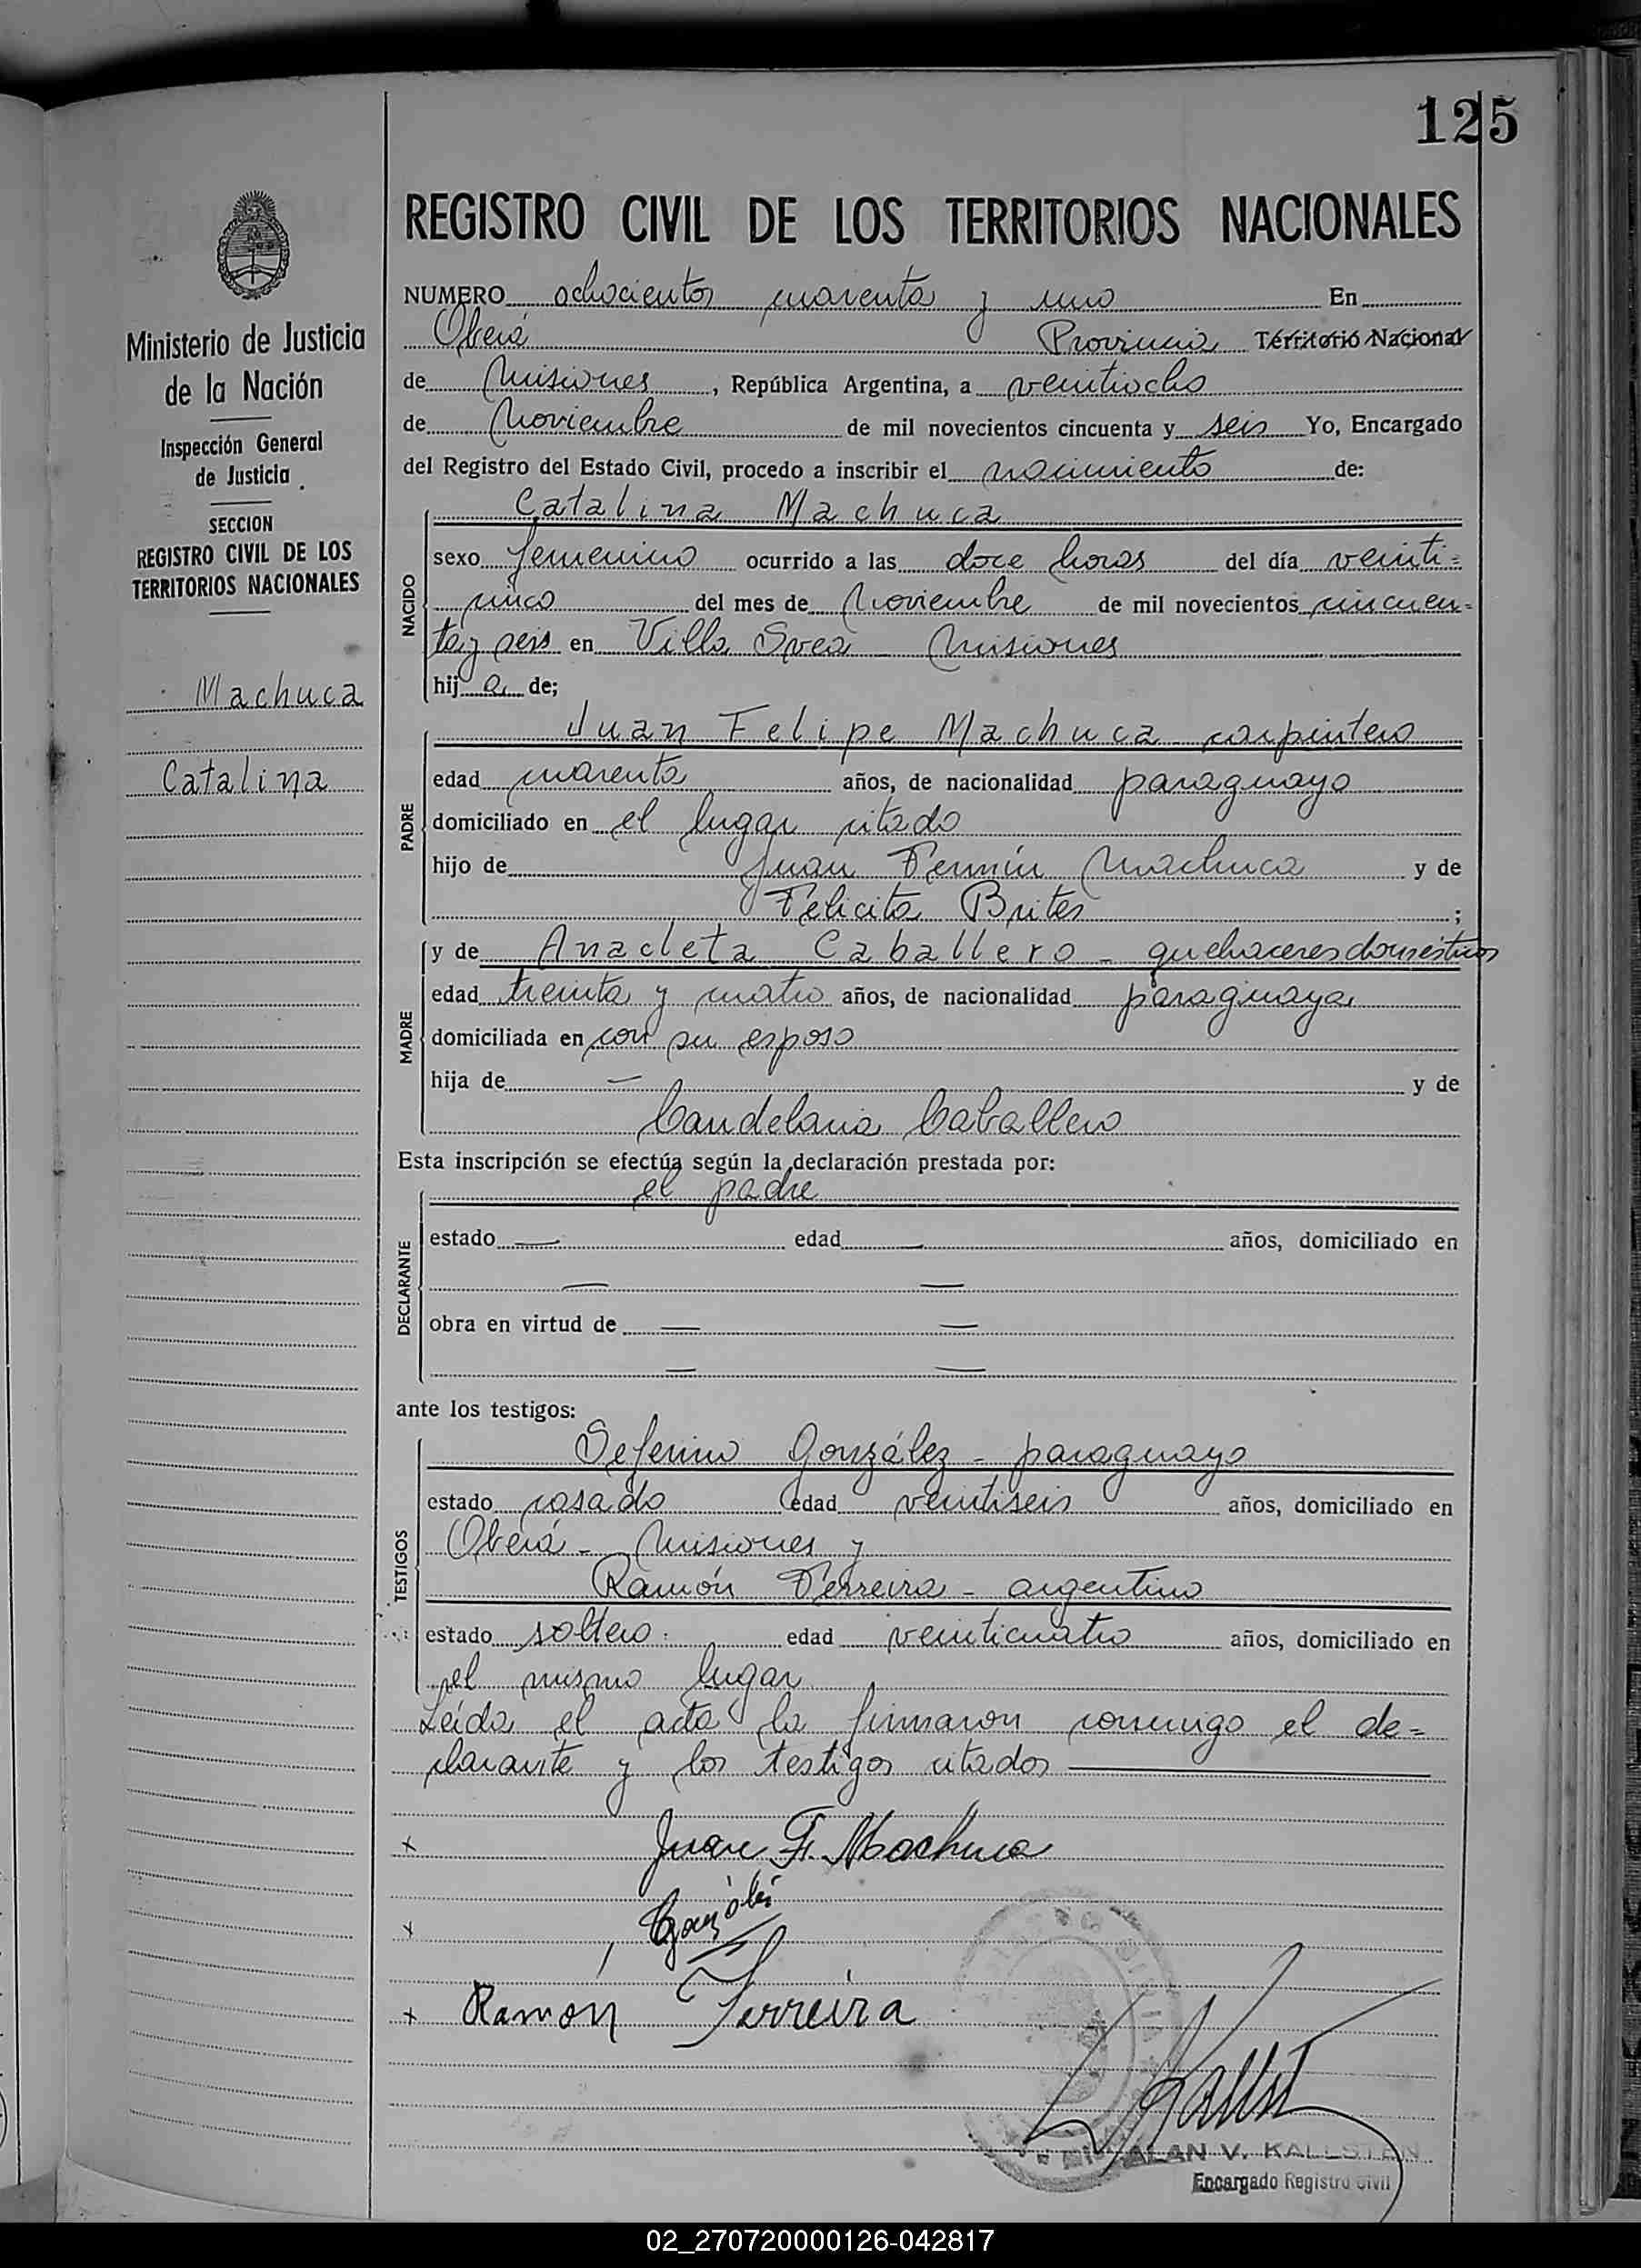 125
REGISTRO CIVIL DE LOS TERRITORIOS NACIONALES
Ministerio de Justicia
de la Nación
Inspección General
de Justicia
SECCION
REGISTRO CIVIL DE LOS
TERRITORIOS NACIONALES
Machuca
Catalina
NUMERO ochocientos cuarenta y uno En
Oberá Provincia Territorio Nacional
de Misiones, República Argentina, a veintiocho
de Noviembre de mil novecientos cincuenta y seis Yo, Encargado
del Registro del Estado Civil, procedo a inscribir el nacimiento de:
NACIDO
Catalina Machuca
sexo femenino ocurrido a las doce horas del día veinti=
cinco del mes de Noviembre de mil novecientos cincuen=
ta y seis en Villa Svea - Misiones
hij a de;
PADRE
Juan Felipe Machuca - carpintero
edad cuarenta años, de nacionalidad paraguayo
domiciliado en el lugar citado
hijo de Juan Fermín Machuca y de
Felicita Brites ;
MADRE
y de Anacleta Caballero - quehaceres domésticos
edad treinta y cuatro años, de nacionalidad paraguaya
domiciliada en con su esposo
hija de — y de
Candelaria Caballero
Esta inscripción se efectúa según la declaración prestada por:
DECLARANTE
el padre
estado — edad — años, domiciliado en
— —
obra en virtud de — —
— —
ante los testigos:
TESTIGOS
Seferino González - paraguayo
estado casado edad veintiseis años, domiciliado en
Oberá - Misiones y
Ramón Ferreira - argentino
estado soltero edad veinticuatro años, domiciliado en
el mismo lugar
Leída el acta la firmaron conmigo el de=
clarante y los testigos citados
x Juan F. Machuca
x
x Ramón Ferreira
ALAN V. KALLSTEN
Encargado Registro Civil
02_270720000126-042817